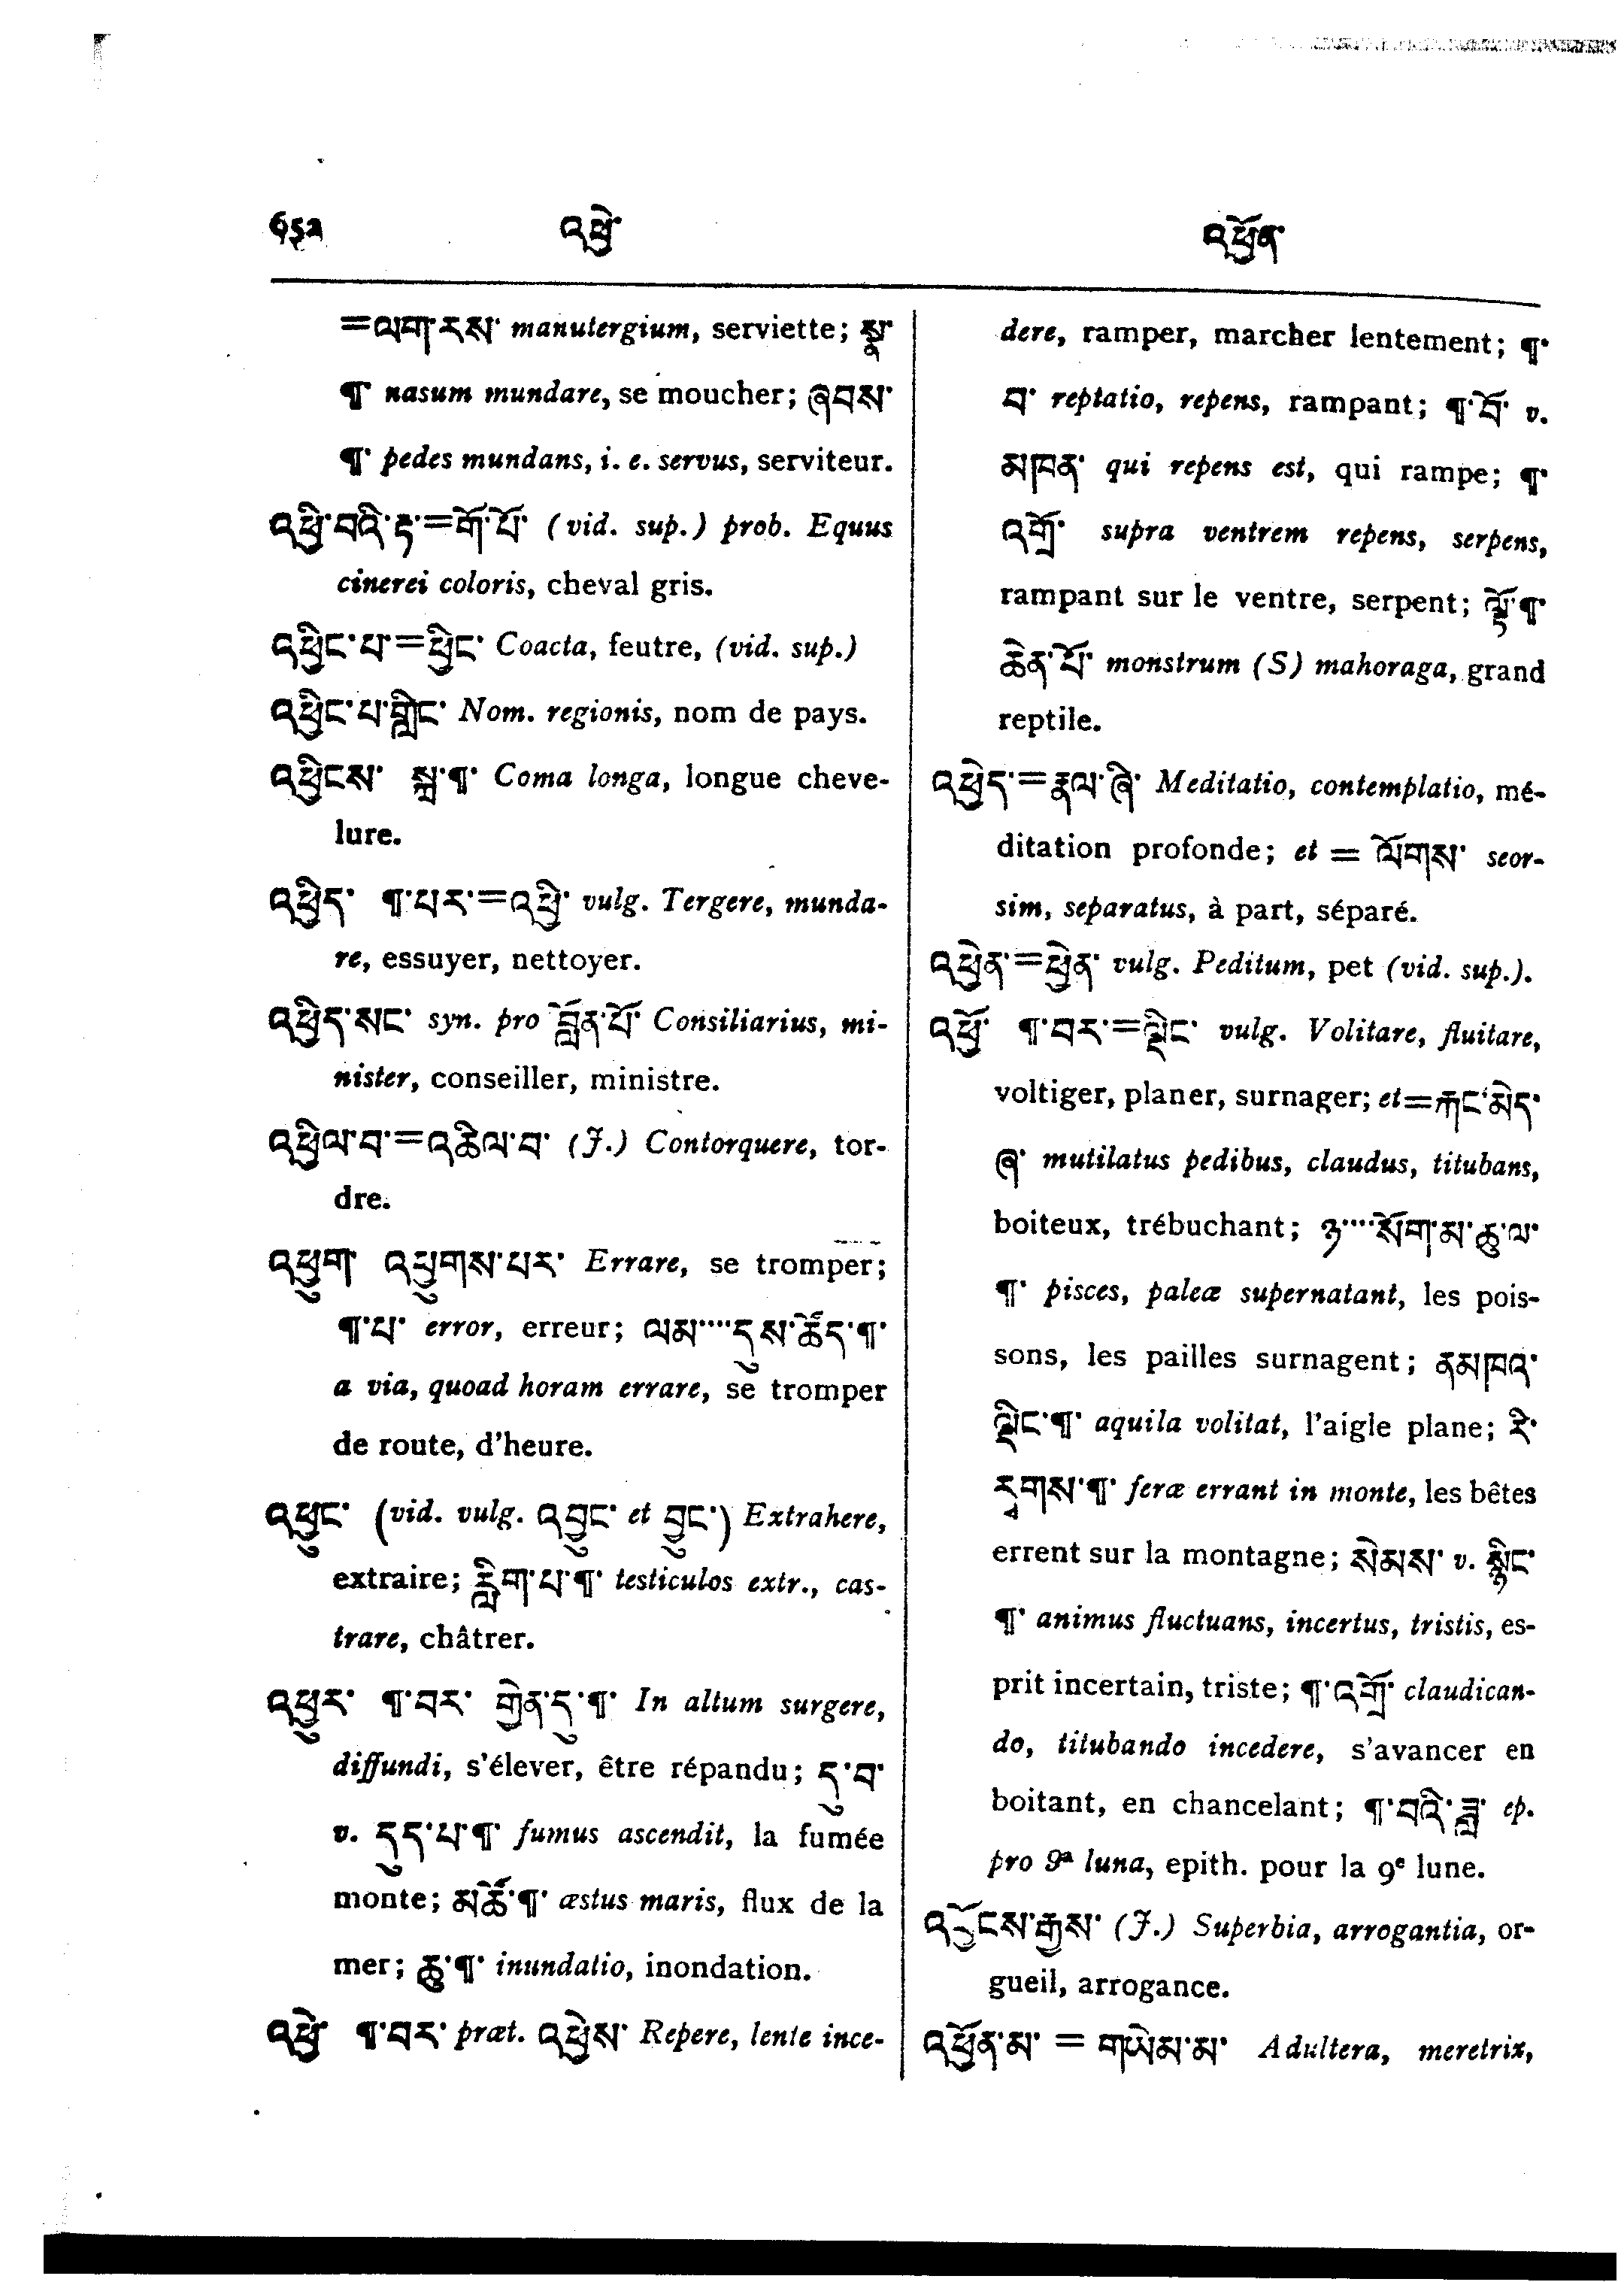 652 འཕྱེ་ འཕྱོན་
=ལག་རས་ manutergium, serviette; སྣ་
¶་ nasum mundare, se moucher; ཞབས་
¶་ pedes mundans, i. e. servus, serviteur.
འཕྱི་བའི་རྟ་=གོ་པོ་ (vid. sup.) prob. Equus
cinerei coloris, cheval gris.
འཕྱིང་པ་=ཕྱིང་ Coacta, feutre, (vid. sup.)
འཕྱིང་པ་གླིང་ Nom. regionis, nom de pays.
འཕྱིངས་ སྐྲ་¶་ Coma longa, longue cheve-
lure.
འཕྱིད་ ¶་པར་=འཕྱི་ vulg. Tergere, munda-
re, essuyer, nettoyer.
འཕྱིད་སང་ syn. pro བློན་པོ་ Consiliarius, mi-
nister, conseiller, ministre.
འཕྱིལ་བ་=འཆིལ་བ་ (J.) Contorquere, tor-
dre.
འཕྱུག་ འཕྱུགས་པར་ Errare, se tromper;
¶་པ་ error, erreur; ལམ་་་་དུས་ཚོད་¶་
a via, quoad horam errare, se tromper
de route, d'heure.
འཕྱུང་ (vid. vulg. འབྱུང་ et བྱུང་) Extrahere,
extraire; རླིག་པ་¶་ testiculos extr., cas-
trare, châtrer.
འཕྱུར་ ¶་བར་ གྱེན་དུ་¶་ In altum surgere,
diffundi, s'élever, être répandu; དུ་བ་
v. དུད་པ་¶་ fumus ascendit, la fumée
monte; མཚོ་¶་ æstus maris, flux de la
mer; ཆུ་¶་ inundatio, inondation.
འཕྱེ་ ¶་བར་ præt. འཕྱེས་ Repere, lente ince-
dere, ramper, marcher lentement; ¶་
བ་ reptatio, repens, rampant; ¶་བོ་ v.
མཁན་ qui repens est, qui rampe; ¶་
འགྲོ་ supra ventrem repens, serpens,
rampant sur le ventre, serpent; ལྟོ་¶་
ཆེན་པོ་ monstrum (S) mahoraga, grand
reptile.
འཕྱེད་=རྣལ་ཞི་ Meditatio, contemplatio, mé-
ditation profonde; et = ལོགས་ seor-
sim, separatus, à part, séparé.
འཕྱེན་=ཕྱེན་ vulg. Peditum, pet (vid. sup.).
འཕྱོ་ ¶་བར་=ལྡིང་ vulg. Volitare, fluitare,
voltiger, planer, surnager; et=རྐང་མེད་
ཞ་ mutilatus pedibus, claudus, titubans,
boiteux, trébuchant; ཉ་་་་སོག་མ་ཆུ་ལ་
¶་ pisces, paleæ supernatant, les pois-
sons, les pailles surnagent; ནམཁའ་
ལྡིང་¶་ aquila volitat, l'aigle plane; རི་
དྭགས་¶་ feræ errant in monte, les bêtes
errent sur la montagne; སེམས་ v. སྙིང་
¶་ animus fluctuans, incertus, tristis, es-
prit incertain, triste; ¶་འགྲོ་ claudican-
do, titubando incedere, s'avancer en
boitant, en chancelant; ¶་བའི་ཟླ་ ep.
pro 9ª luna, epith. pour la 9ᵉ lune.
འཕྱོངས་རྒྱས་ (J.) Superbia, arrogantia, or-
gueil, arrogance.
འཕྱོན་མ་ = གཡེམ་མ་ Adultera, meretrix,